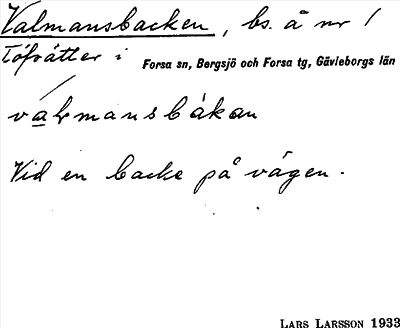 Valmansbacken, bs. å nr 1
Töfsätter i Forsa sn, Bergsjö och Forsa tg, Gävleborgs län
valmansbakan
Vid en backe på vägen.
LARS LARSSON 1933